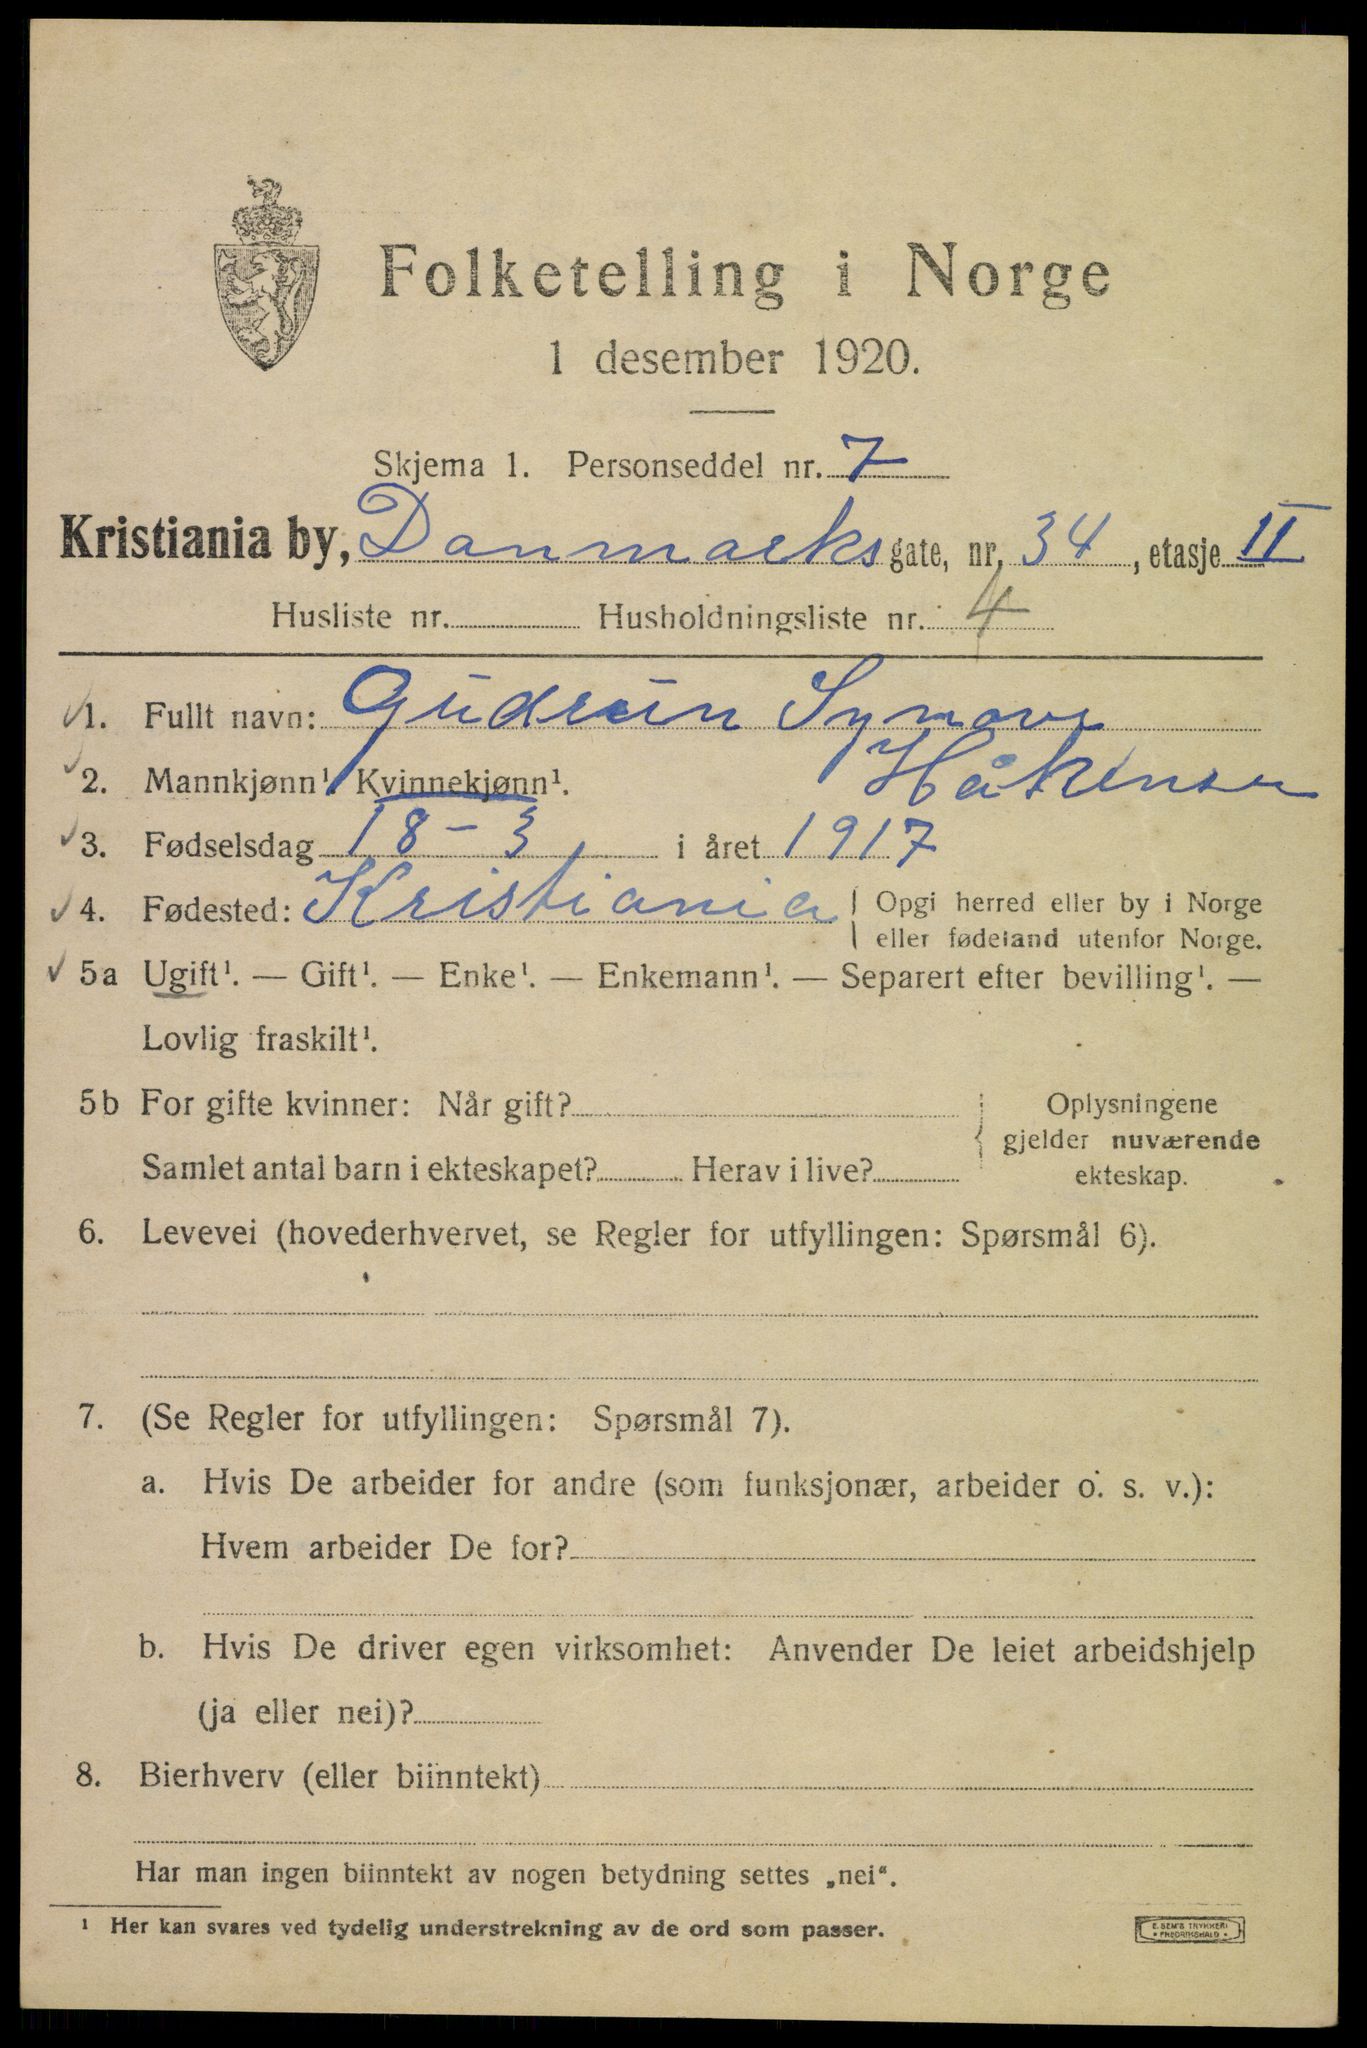 Folketelling i Norge
1 desember 1920.
Skjema 1. Personseddel nr. 7
Kristiania by, Danmarks gate, nr. 34, etasje II
Husliste nr. Husholdningsliste nr. 4
1. Fullt navn: Gudrun Synove
Håkensen
2. Mannkjønn¹ Kvinnekjønn¹.
3. Fødselsdag 18-3 i året 1917
4. Fødested: Kristiania Opgi herred eller by i Norge
eller fødeland utenfor Norge.
5a Ugift¹. — Gift¹. — Enke¹. — Enkemann¹. — Separert efter bevilling¹. —
Lovlig fraskilt¹.
5b For gifte kvinner: Når gift? Oplysningene
gjelder nuværende
Samlet antal barn i ekteskapet? Herav i live? ekteskap.
6. Levevei (hovederhvervet, se Regler for utfyllingen: Spørsmål 6).
7. (Se Regler for utfyllingen: Spørsmål 7).
a. Hvis De arbeider for andre (som funksjonær, arbeider o. s. v.):
Hvem arbeider De for?
b. Hvis De driver egen virksomhet: Anvender De leiet arbeidshjelp
(ja eller nei)?
8. Bierhverv (eller biinntekt)
Har man ingen biinntekt av nogen betydning settes „nei“.
¹ Her kan svares ved tydelig understrekning av de ord som passer.
E. SEM'S TRYKKERI
• FREDRIKSHALD •